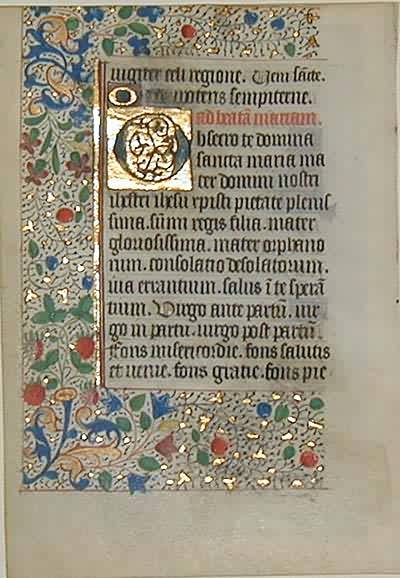 iugiter celi regione. Ueni sāte.
potens sempiterne.
ad beatā mariam.
Obsecro te domina
sancta maria ma
ter domini nostri
ihesu xpisti pietate plenis
sima. sūmi regis filia. mater
gloriosissima. mater orphano
rum. consolatio desolatorum.
uia errantium. salus ī te sperā
tium. Uirgo ante partū. uir
go in partu. uirgo post partū.
Fons misericordie. fons salutis
et uenie. fons gratie. fons pie